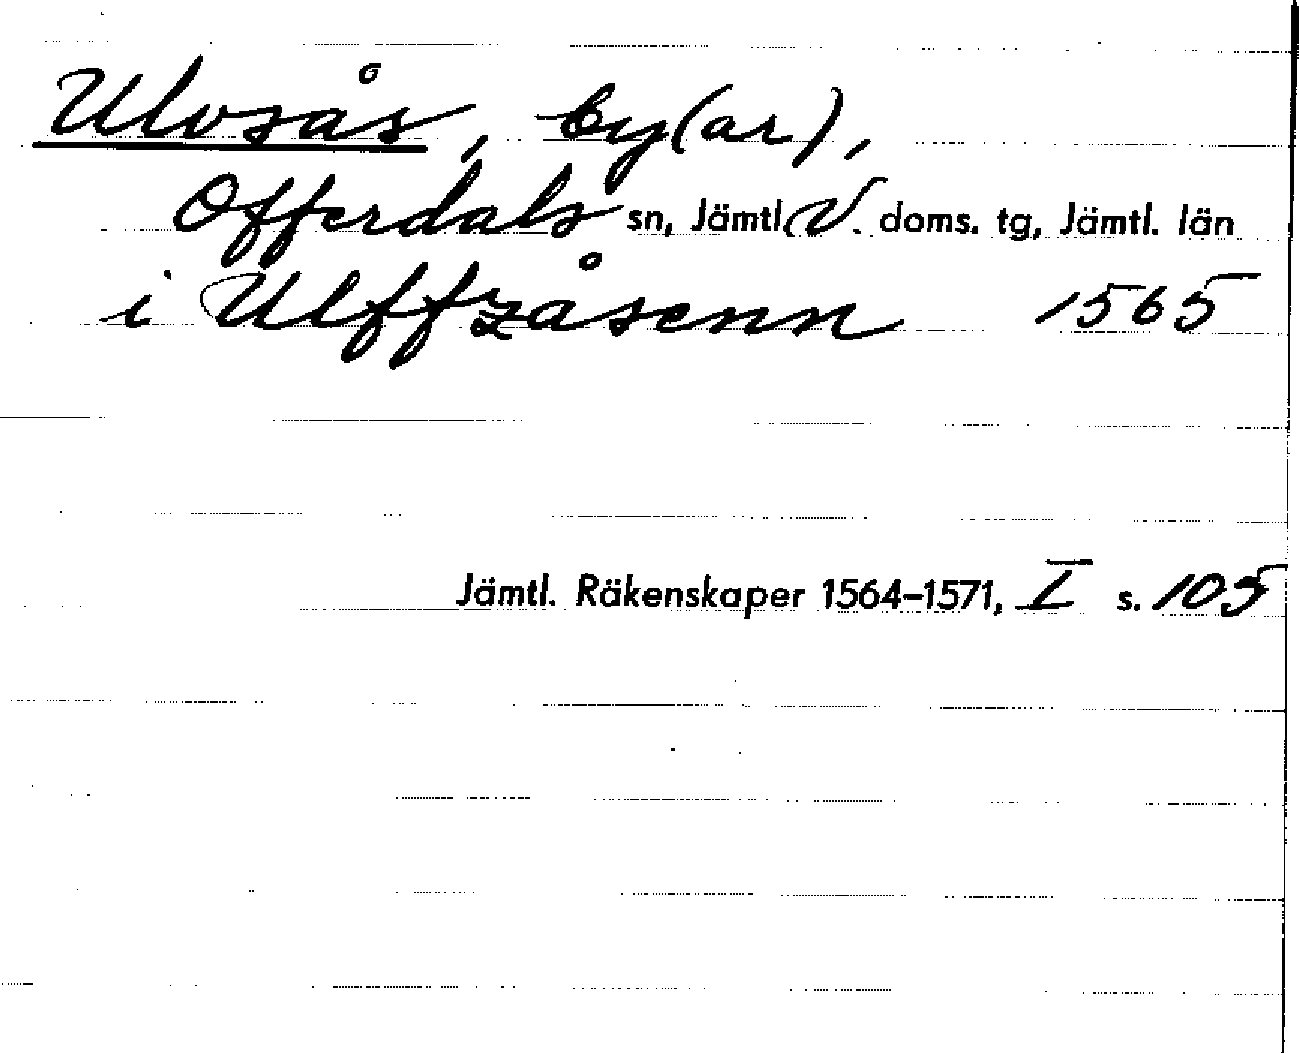 Ulvsås, by(ar),
Offerdals sn, Jämtl. V. doms. tg, Jämtl. län
i Ulffzåsenn 1565
Jämtl. Räkenskaper 1564–1571, I s. 105